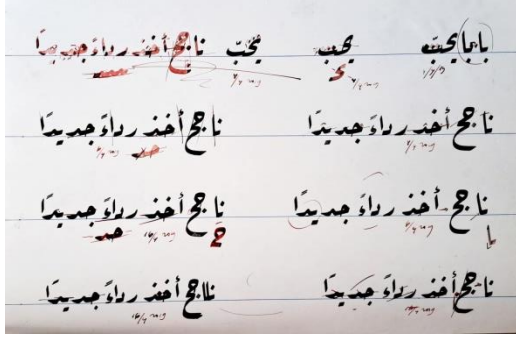 بابا يحبّ يحب يحبّ ناجح أخذ رداءً جديدًا
ناجح أخذ رداءً جديدًا ناجح أخذ رداءً جديدًا
ناجح أخذ رداءً جديدًا ناجح أخذ رداءً جديدًا
ناجح أخذ رداءً جديدًا ناجح أخذ رداءً جديدًا